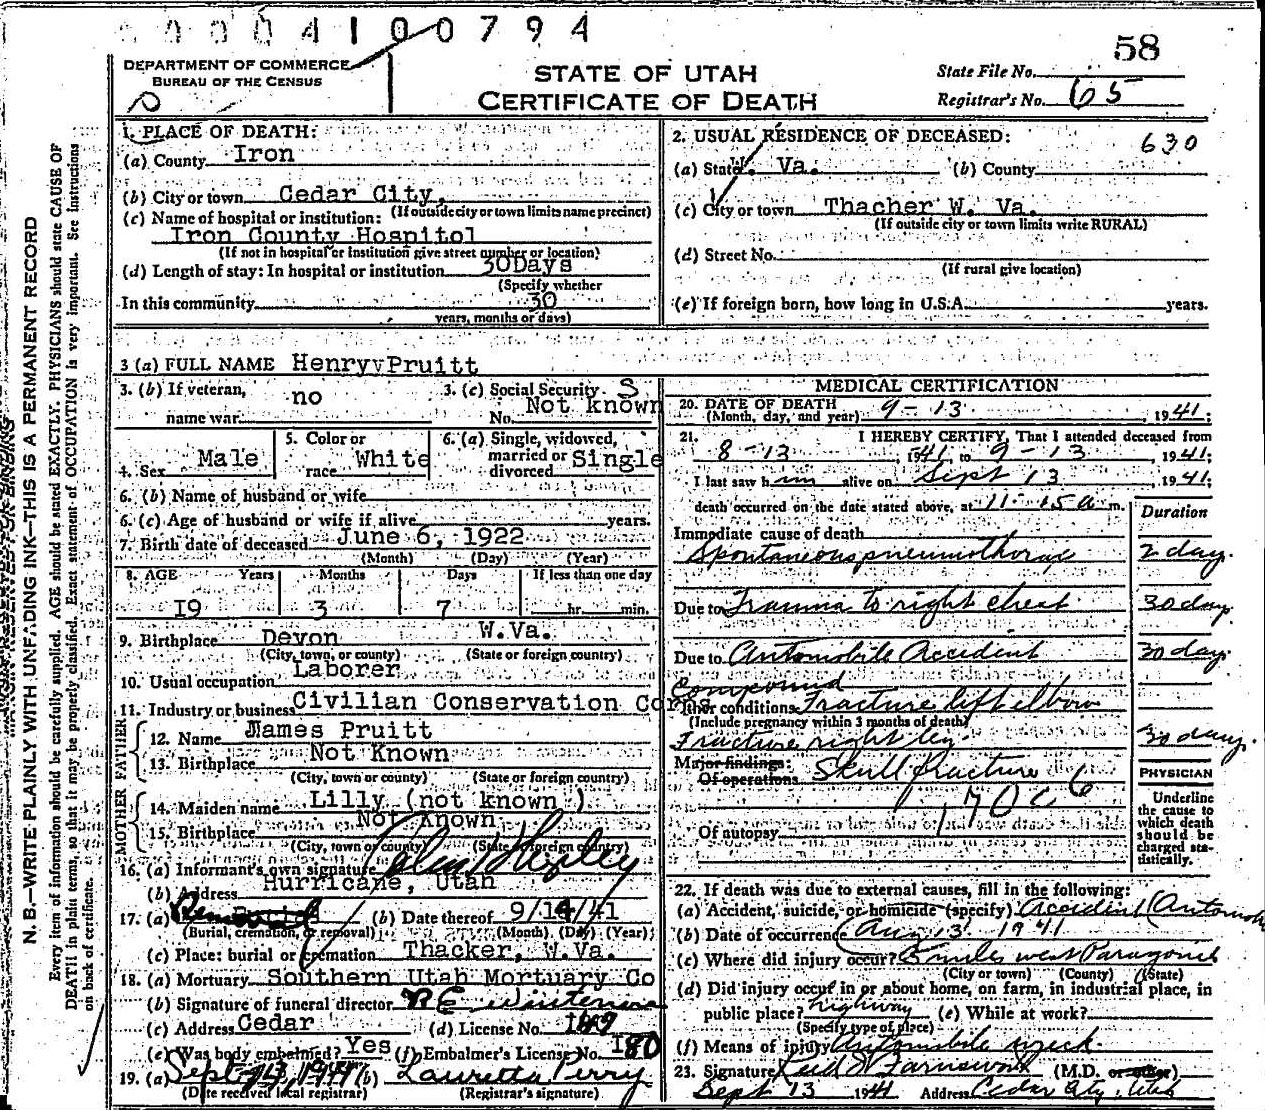 00004100794
58
DEPARTMENT OF COMMERCE
BUREAU OF THE CENSUS
STATE OF UTAH
CERTIFICATE OF DEATH
State File No.
Registrar's No. 65
N. B.—WRITE PLAINLY WITH UNFADING INK—THIS IS A PERMANENT RECORD
Every item of information should be carefully supplied. AGE should be stated EXACTLY. PHYSICIANS should state CAUSE OF
DEATH in plain terms, so that it may be properly classified. Exact statement of OCCUPATION is very important. See instructions
on back of certificate.
1. PLACE OF DEATH:
(a) County Iron
(b) City or town Cedar City,
(If outside city or town limits name precinct)
(c) Name of hospital or institution:
Iron County Hospitol
(If not in hospital or institution give street number or location)
(d) Length of stay: In hospital or institution 30Days
(Specify whether
In this community 30
years, months or days)
2. USUAL RESIDENCE OF DECEASED:
630
(a) State W. Va. (b) County
(c) City or town Thacher W. Va.
(If outside city or town limits write RURAL)
(d) Street No.
(If rural give location)
(e) If foreign born, how long in U.S.A. years.
3 (a) FULL NAME Henry Pruitt
3. (b) If veteran, name war no
3. (c) Social Security No. Not known
4. Sex Male
5. Color or race White
6. (a) Single, widowed, married or divorced Single
6. (b) Name of husband or wife
6. (c) Age of husband or wife if alive years.
7. Birth date of deceased June 6, 1922
(Month) (Day) (Year)
8. AGE Years Months Days If less than one day
19 3 7 hr. min.
9. Birthplace Devon W.Va.
(City, town, or county) (State or foreign country)
10. Usual occupation Laborer
11. Industry or business Civilian Conservation Corps
FATHER
12. Name James Pruitt
13. Birthplace Not Known
(City, town or county) (State or foreign country)
MOTHER
14. Maiden name Lilly (not known )
15. Birthplace Not Known
(City, town or county) (State or foreign country)
16. (a) Informant's own signature
(b) Address Hurricane, Utah
17. (a) Removal (b) Date thereof 9/14/41
(Burial, cremation, or removal) (Month) (Day) (Year)
(c) Place: burial or cremation Thacker, W.Va.
18. (a) Mortuary Southern Utah Mortuary Co
(b) Signature of funeral director
(c) Address Cedar (d) License No. 149
(e) Was body embalmed? Yes (f) Embalmer's License No. 180
19. (a) Sept 13, 1941 (b) Lauretta Perry
(Date received local registrar) (Registrar's signature)
MEDICAL CERTIFICATION
20. DATE OF DEATH
(Month, day, and year) 9-13, 1941;
21. I HEREBY CERTIFY, That I attended deceased from
8-13, 1941, to 9-13 1941;
I last saw him alive on Sept 13, 1941;
death occurred on the date stated above, at 11-15 a m.
Duration
Immediate cause of death
Spontaneous pneumothorax 2 day.
Due to Trauma to right chest 30 day.
Due to Automobile Accident 30 day.
Compound
Other conditions Fracture left elbow
(Include pregnancy within 3 months of death)
Fracture right leg. 30 day.
Major findings:
Of operations Skull fracture
170c6
Of autopsy
PHYSICIAN
Underline
the cause to
which death
should be
charged sta-
tistically.
22. If death was due to external causes, fill in the following:
(a) Accident, suicide, or homicide (specify) Accident (Automobile
(b) Date of occurrence Aug 13 1941
(c) Where did injury occur? 5 miles west Paragonah
(City or town) (County) (State)
(d) Did injury occur in or about home, on farm, in industrial place, in
public place? highway (e) While at work?
(Specify type of place)
(f) Means of injury Automobile wreck.
23. Signature Reid W Farnsworth (M.D. or other)
Sept 13 1941 Address Cedar City, Utah